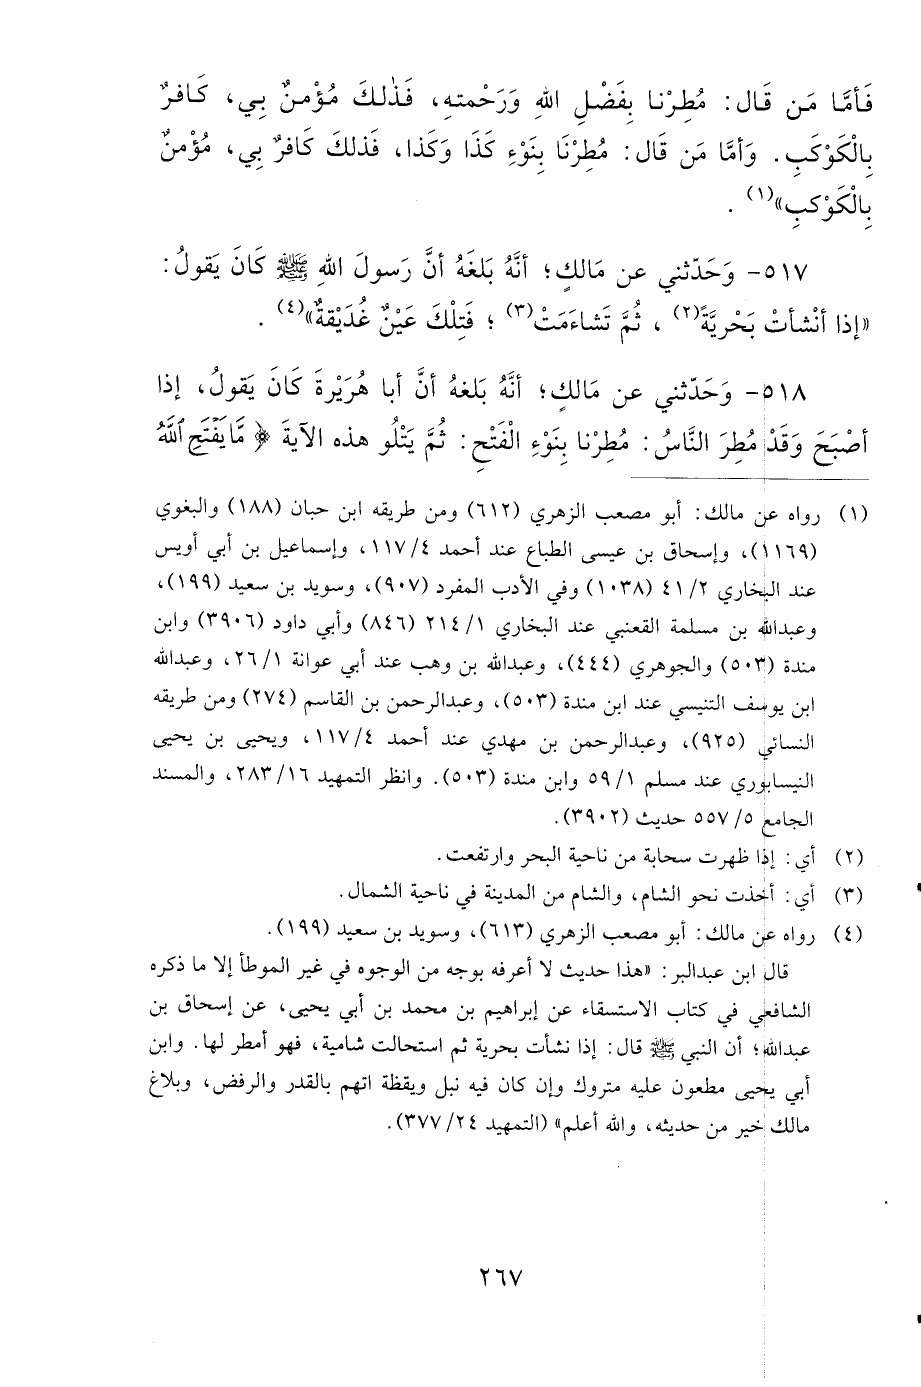 فَأمَّا مَن قَال: مُطِرْنا بِفَضْلِ اللهِ وَرَحْمتهِ، فَذٰلكَ مُؤْمنٌ بِي، كَافرٌ
بِالْكَوْكَبِ. وَأمَّا مَن قَالَ: مُطِرْنَا بِنَوْءِ كَذَا وَكَذا، فَذلكَ كَافرٌ بِي، مُؤْمنٌ
بِالْكَوْكبِ»(١) .
٥١٧- وَحَدّثني عن مَالكٍ؛ أنَّهُ بَلغَهُ أنَّ رَسولَ اللهِ ﷺ كَانَ يَقولُ:
«إذا أنْشأتْ بَحْريَّةً(٢) ، ثُمَّ تَشاءَمَتْ(٣) ؛ فَتِلْكَ عَيْنٌ غُدَيْقةٌ»(٤) .
٥١٨- وَحَدّثني عن مَالكٍ؛ أنَّهُ بَلغهُ أنَّ أبا هُرَيْرةَ كَانَ يَقولُ، إذا
أصْبَحَ وَقَدْ مُطِرَ النَّاسُ: مُطِرْنا بِنَوْءِ الْفَتْحِ: ثُمَّ يَتْلُو هذه الآيةَ ﴿ مَّا يَفْتَحِ ٱللَّهُ
(١) رواه عن مالك: أبو مصعب الزهري (٦١٢) ومن طريقه ابن حبان (١٨٨) والبغوي
(١١٦٩)، وإسحاق بن عيسى الطباع عند أحمد ٤/ ١١٧، وإسماعيل بن أبي أويس
عند البخاري ٢/ ٤١ (١٠٣٨) وفي الأدب المفرد (٩٠٧)، وسويد بن سعيد (١٩٩)،
وعبدالله بن مسلمة القعنبي عند البخاري ١/ ٢١٤ (٨٤٦) وأبي داود (٣٩٠٦) وابن
مندة (٥٠٣) والجوهري (٤٤٤)، وعبدالله بن وهب عند أبي عوانة ١/ ٢٦، وعبدالله
ابن يوسف التنيسي عند ابن مندة (٥٠٣)، وعبدالرحمن بن القاسم (٢٧٤) ومن طريقه
النسائي (٩٢٥)، وعبدالرحمن بن مهدي عند أحمد ٤/ ١١٧، ويحيى بن يحيى
النيسابوري عند مسلم ١/ ٥٩ وابن مندة (٥٠٣). وانظر التمهيد ١٦/ ٢٨٣، والمسند
الجامع ٥/ ٥٥٧ حديث (٣٩٠٢).
(٢) أي: إذا ظهرت سحابة من ناحية البحر وارتفعت.
(٣) أي: أخذت نحو الشام، والشام من المدينة في ناحية الشمال.
(٤) رواه عن مالك: أبو مصعب الزهري (٦١٣)، وسويد بن سعيد (١٩٩).
قال ابن عبدالبر: «هذا حديث لا أعرفه بوجه من الوجوه في غير الموطأ إلا ما ذكره
الشافعي في كتاب الاستسقاء عن إبراهيم بن محمد بن أبي يحيى، عن إسحاق بن
عبدالله؛ أن النبي ﷺ قال: إذا نشأت بحرية ثم استحالت شامية، فهو أمطر لها. وابن
أبي يحيى مطعون عليه متروك وإن كان فيه نبل ويقظة اتهم بالقدر والرفض، وبلاغ
مالك خير من حديثه، والله أعلم» (التمهيد ٢٤/ ٣٧٧).
٢٦٧